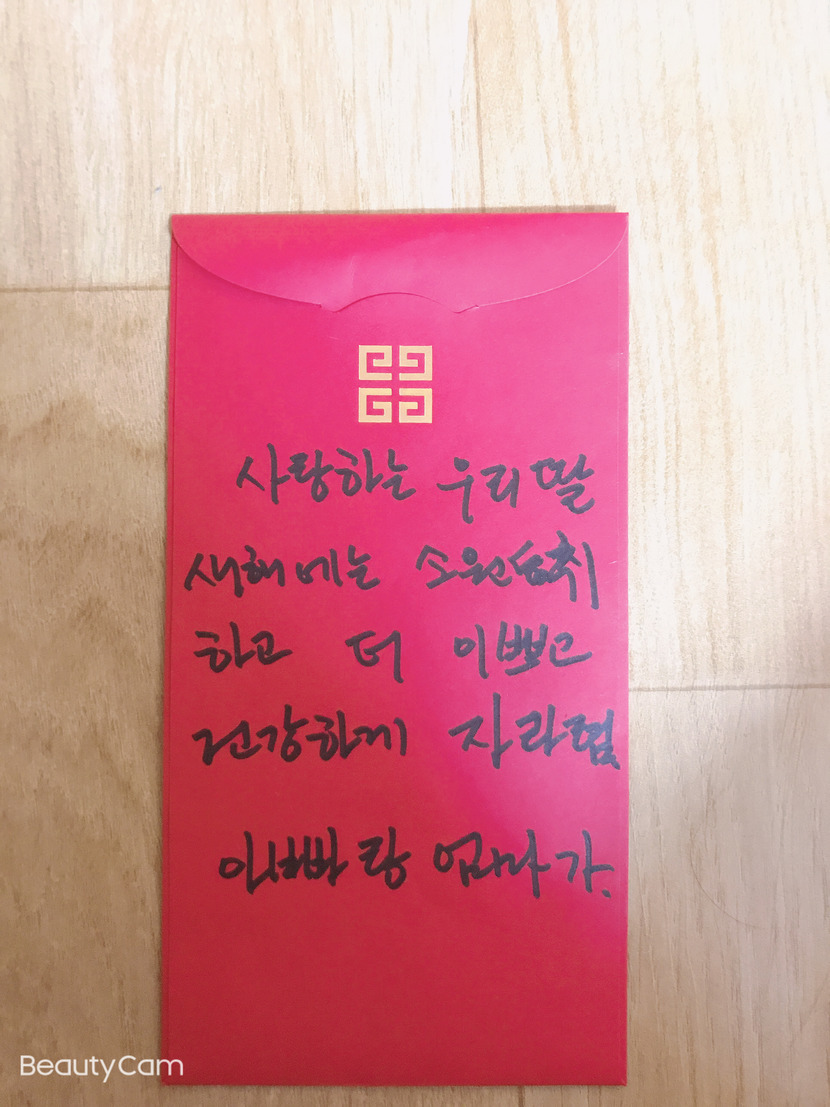 사랑하는 우리 딸
새해에는 소원성취
하고 더 이쁘고
건강하게 자라렴
아빠랑 엄마가.
BeautyCam